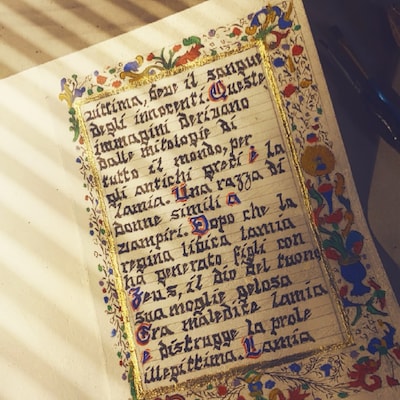 vittima, beve il sangue
degli innocenti. Queste
immagini derivano
dalle mitologie di
tutto il mondo, per
gli antichi greci è la
lamia. Una razza di
donne simili a
vampiri. Dopo che la
regina libica lamia
ha generato figli con
Zeus, il dio del tuono
sua moglie gelosa
Era maledice lamia
e distrugge la prole
illegittima. Lamia